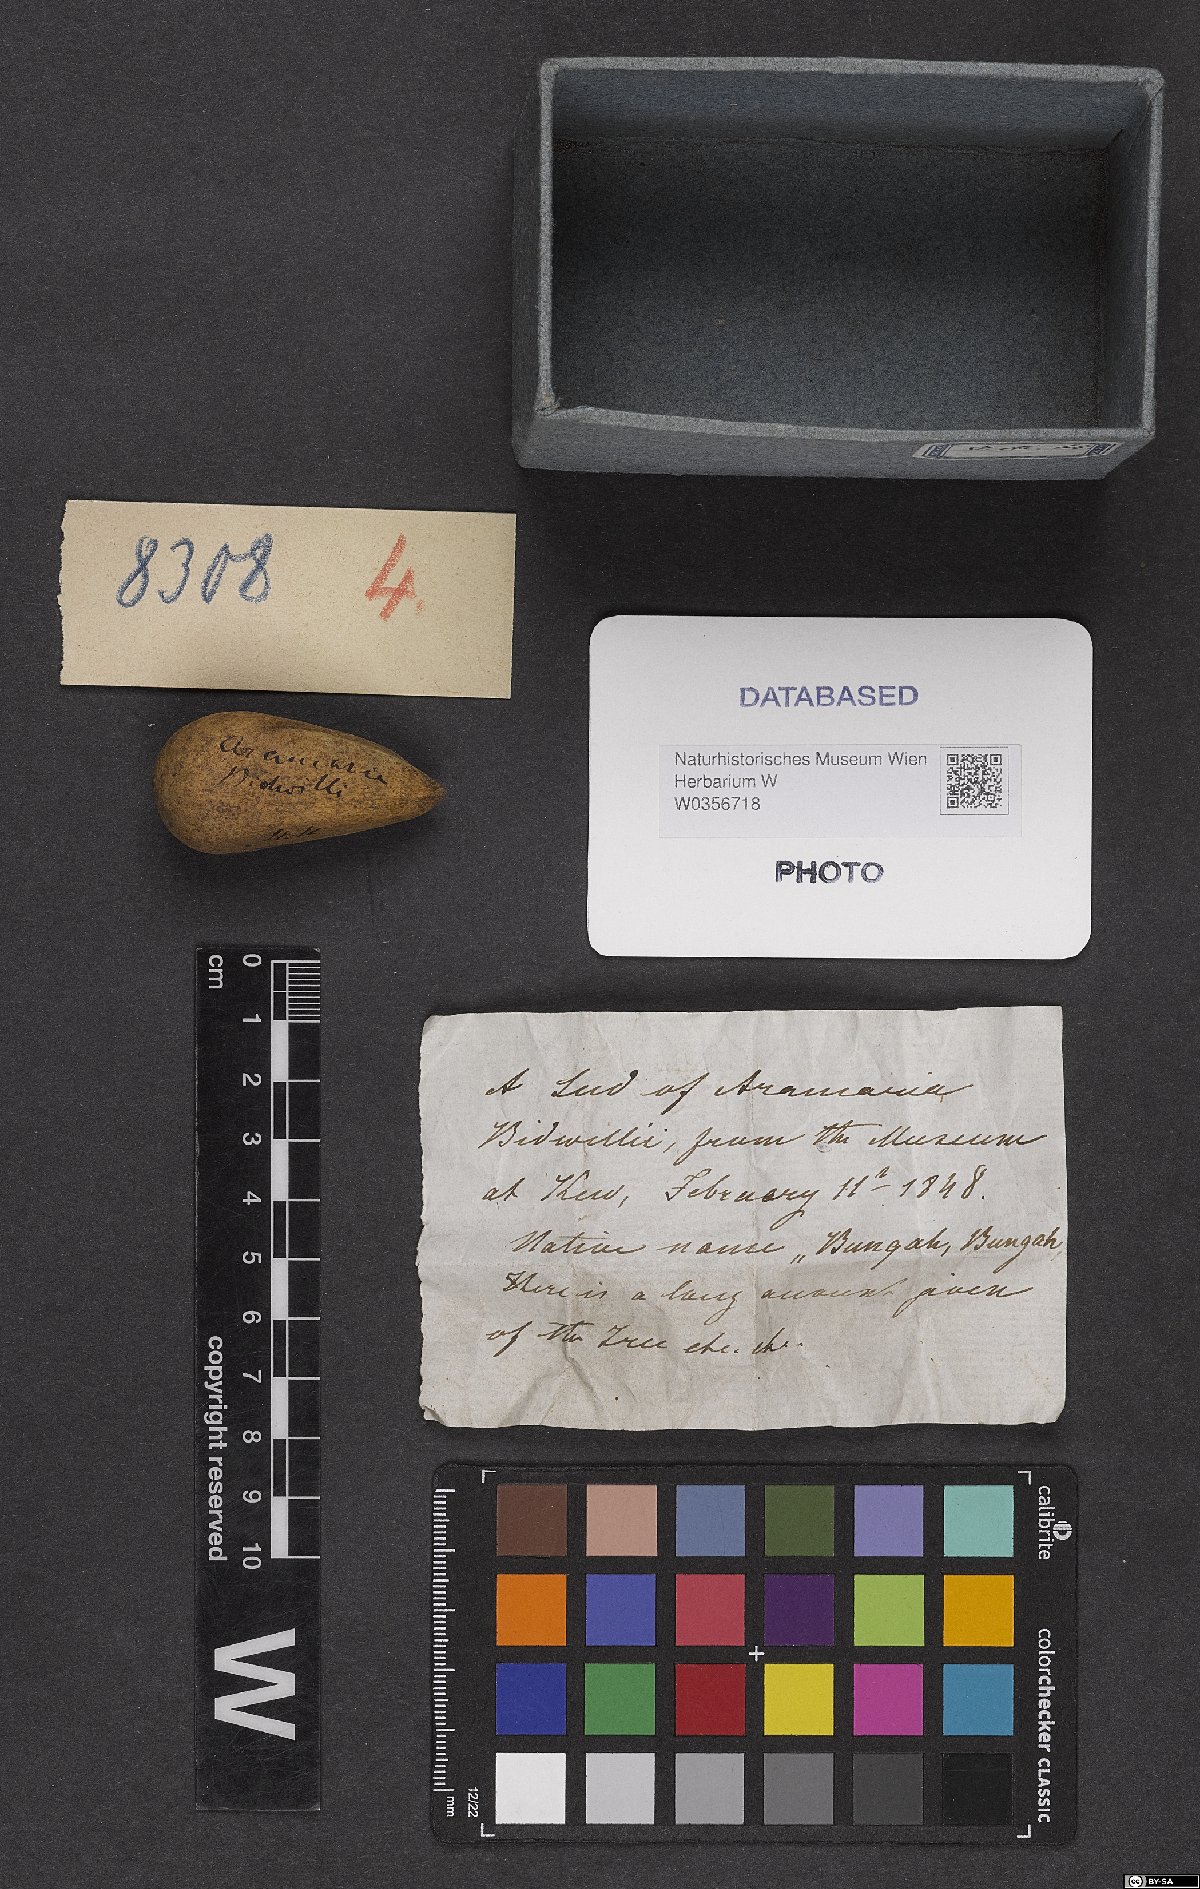 8308 4.
Araucaria
Bidwilli
DATABASED
Naturhistorisches Museum Wien
Herbarium W
W0356718
PHOTO
0 1 2 3 4 5 6 7 8 9 10
cm
copyright reserved
W
A Seed of Araucaria
Bidwillii, from the Museum
at Kew, February 11th 1848.
Native name „Bungah, Bungah
There is a long account given
of the Tree etc. etc.
calibrite
colorchecker CLASSIC
12/22
mm
cc BY-SA